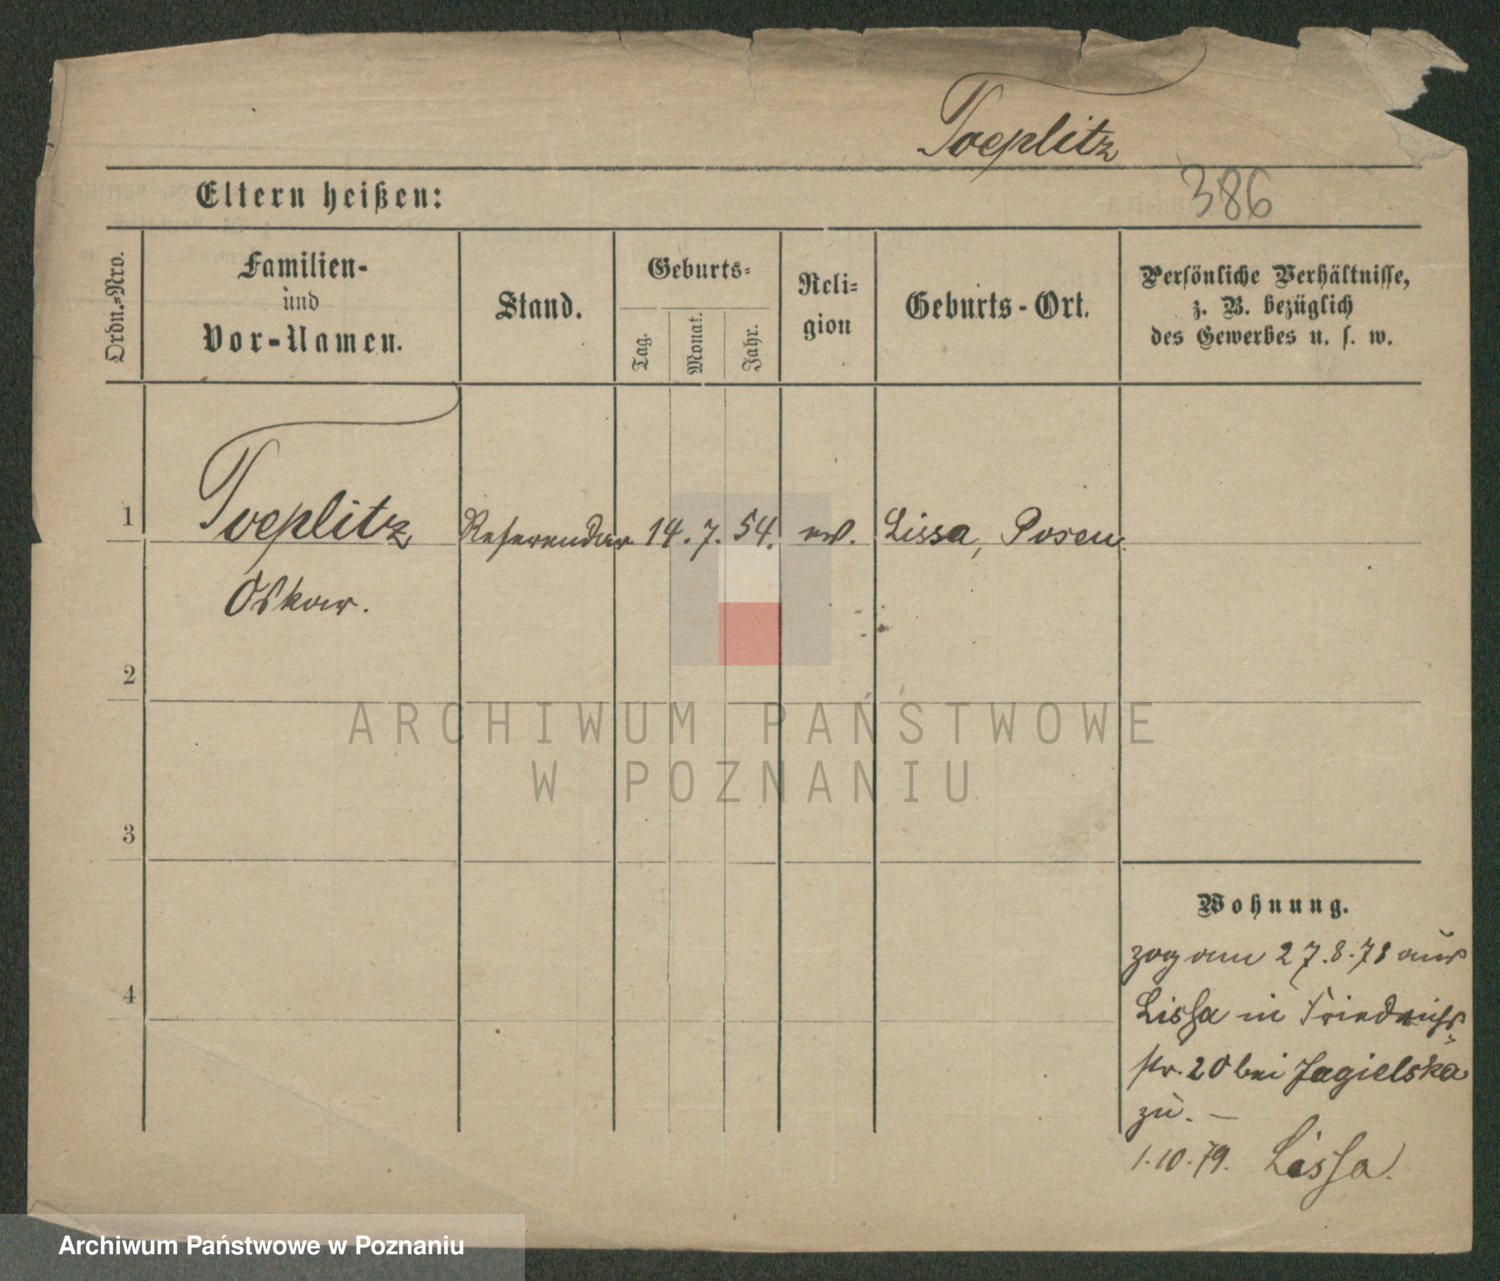 Toeplitz
Eltern heißen:
386
Ordn.-Nro.
Familien-
und
Vor-Namen.
Stand.
Geburts-
Tag.
Monat.
Jahr.
Reli-
gion
Geburts-Ort.
Persönliche Verhältnisse,
z. B. bezüglich
des Gewerbes u. s. w.
1
Toeplitz
Referendar
14. 7. 54.
Lissa, Posen.
Oskar.
2
3
4
ARCHIWUM PAŃSTWOWE
W POZNANIU
Wohnung.
zog am 27.8.78 aus
Lissa in Friedrichs-
str. 20 bei Jagielska
zu. —
1.10.79. Lissa.
Archiwum Państwowe w Poznaniu